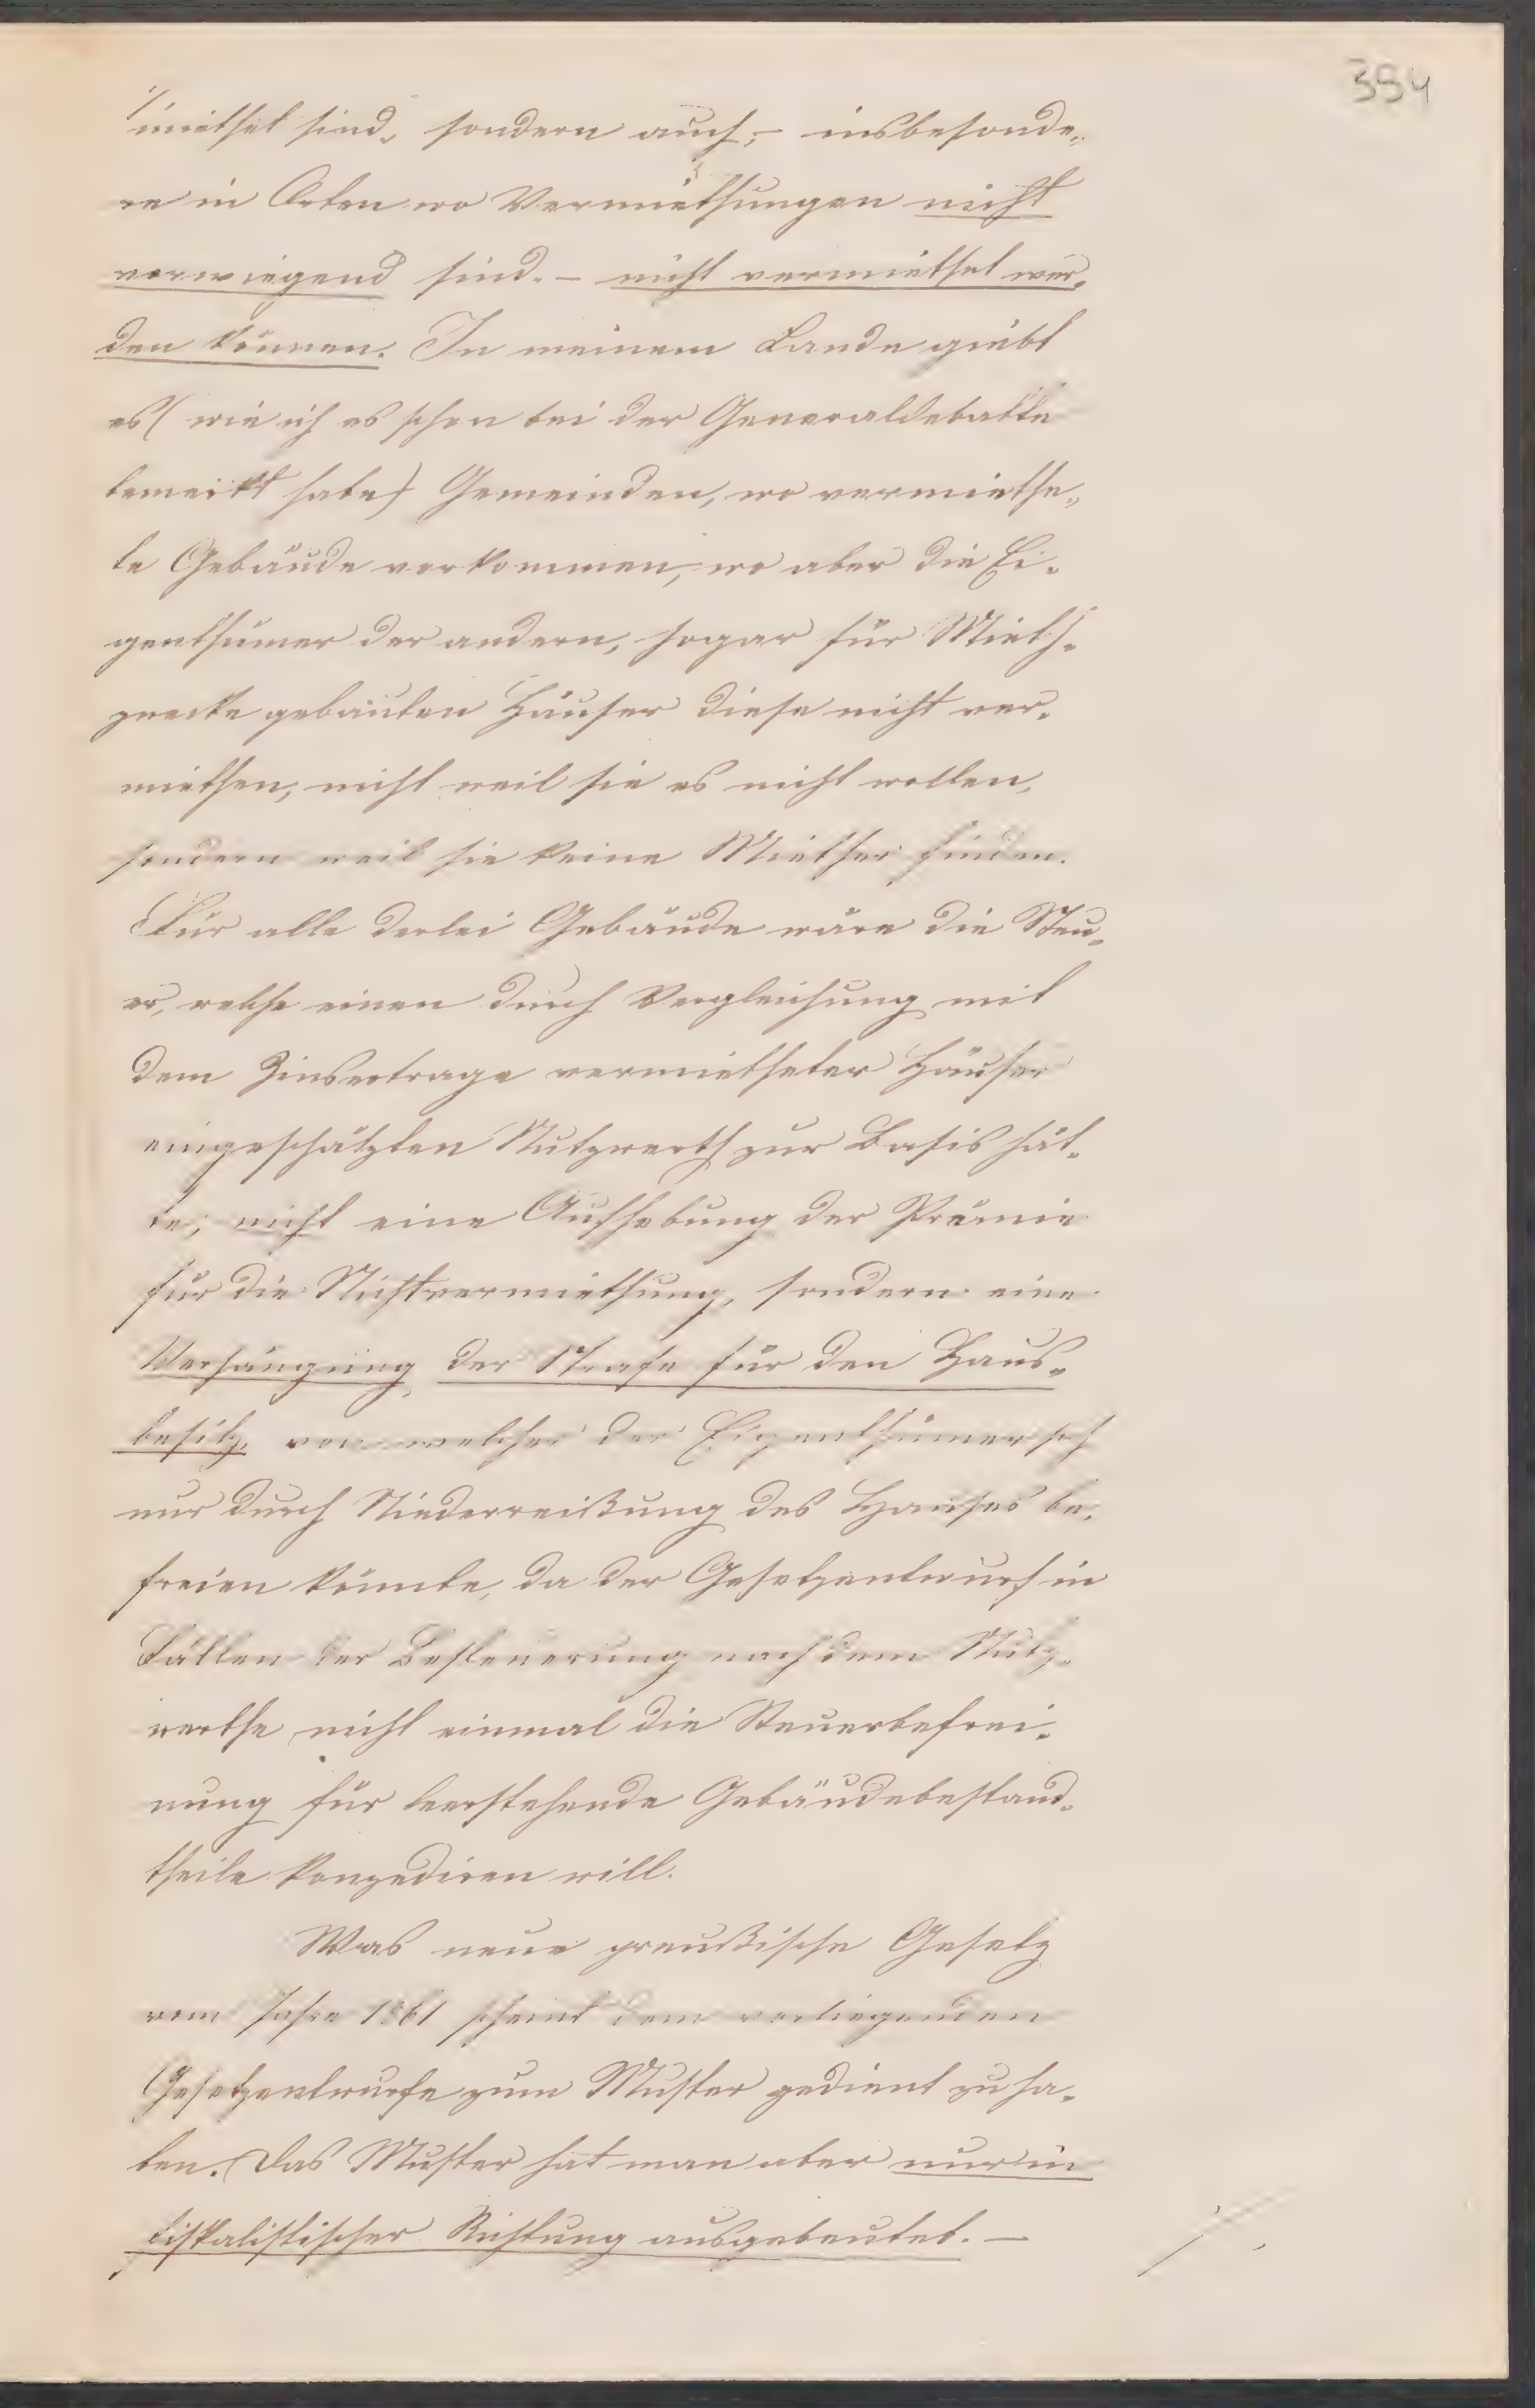 394
miethet sind, sondern auch, – insbesonde„
re in Orten wo Vermiethungen nicht
vorwiegend sind. – nicht vermiethet wer„
den können. In meinem Lande giebt
es (wie ich es schon bei der Generaldebatte
bemerkt habe) Gemeinden, wo vermiethe„
te Gebäude vorkommen, wo aber die Ei„
genthümer der andern, sogar für Mieth„
zwecke gebauten Häuser diese nicht ver„
miethen, nicht weil sie es nicht wollen,
sondern weil sie keine Miether finden.
Für alle derlei Gebäude wäre die Steu„
er, welche einen durch Vergleichung mit
dem Zinsertrage vermietheter Häuser
eingeschätzten Nutzwerth zur Basis hät„
te, nicht eine Aufhebung der Prämie
für die Nichtvermiethung, sondern eine
Verhängung der Strafe für den Haus„
besitz, von welcher der Eigenthümer sich
nur durch Niederreißung des Hauses be„
freien könnte, da der Gesetzentwurf in
Fällen der Besteuerung nach dem Nutz„
werthe nicht einmal die Steuerbefrei„
nung für leerstehende Gebäudebestand„
theile konzediren will.
Das neue preußische Gesetz
vom Jahre 1861 scheint dem vorliegenden
Gesetzentwurfe zum Muster gedient zu ha„
ben. Das Muster hat man aber nur in
fiskalistischer Richtung ausgebeutet. –